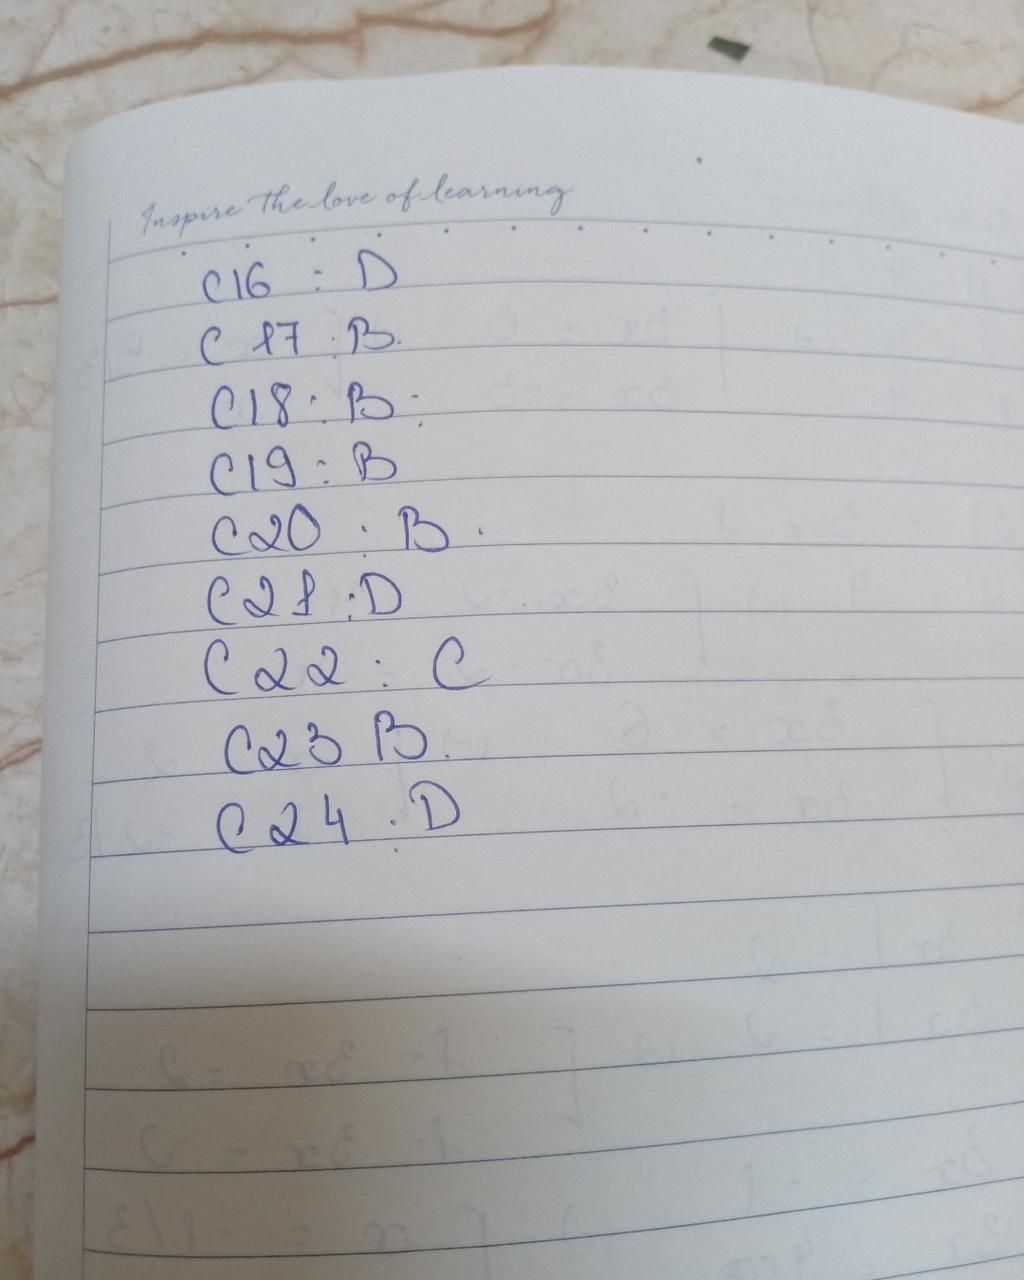 Inspire the love of learning
C16 : D
C17 : B.
C18 : B.
C19 : B
C20 : B.
C21 : D
C22 : C
C23 B.
C24 . D